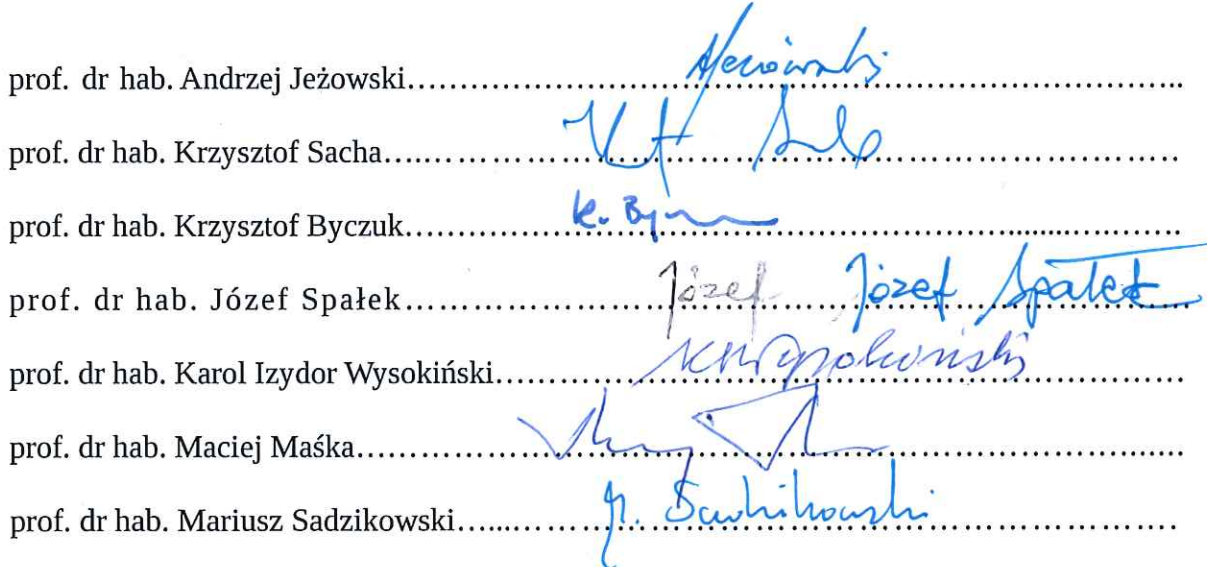 prof. dr hab. Andrzej Jeżowski
prof. dr hab. Krzysztof Sacha
prof. dr hab. Krzysztof Byczuk K. By
prof. dr hab. Józef Spałek Józef Józef Spałek
prof. dr hab. Karol Izydor Wysokiński KIWysokiński
prof. dr hab. Maciej Maśka
prof. dr hab. Mariusz Sadzikowski M. Sadzikowski